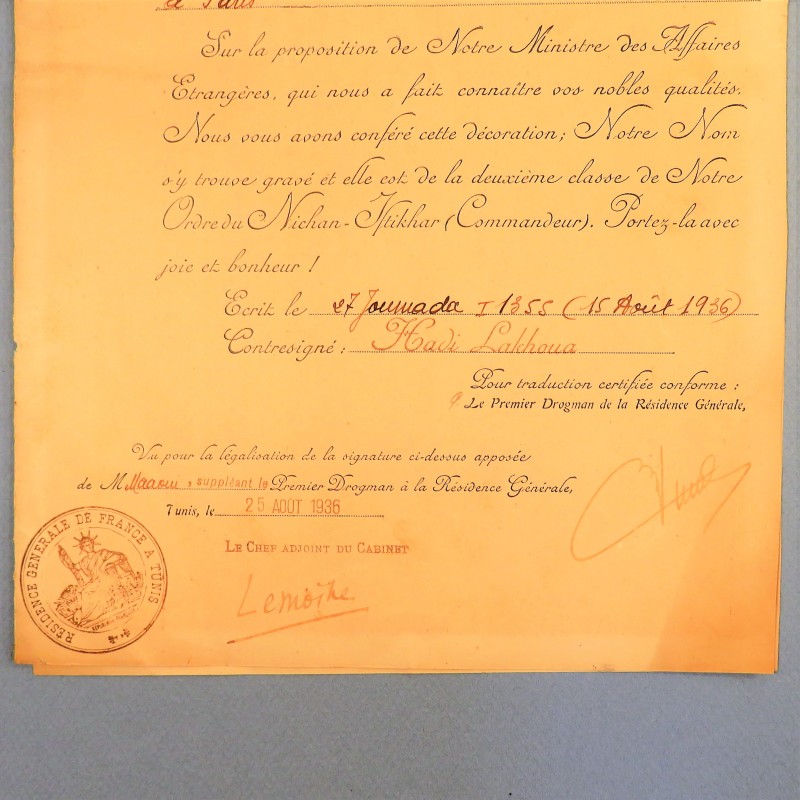 à Paris
Sur la proposition de Notre Ministre des Affaires
Etrangères, qui nous a fait connaître vos nobles qualités.
Nous vous avons conféré cette décoration; Notre Nom
s'y trouve gravé et elle est de la deuxième classe de Notre
Ordre du Nichan-Iftikhar (Commandeur). Portez-la avec
joie et bonheur !
Ecrit le 27 Joumada I 1355 (15 Août 1936)
Contresigné : Hadi Lakhoua
Pour traduction certifiée conforme :
Le Premier Drogman de la Résidence Générale,
Vu pour la légalisation de la signature ci-dessus apposée
de M Maaoui, suppléant le Premier Drogman à la Résidence Générale,
Tunis, le 25 AOÛT 1936
LE CHEF ADJOINT DU CABINET
Lemoine
RÉSIDENCE GÉNÉRALE DE FRANCE A TUNIS